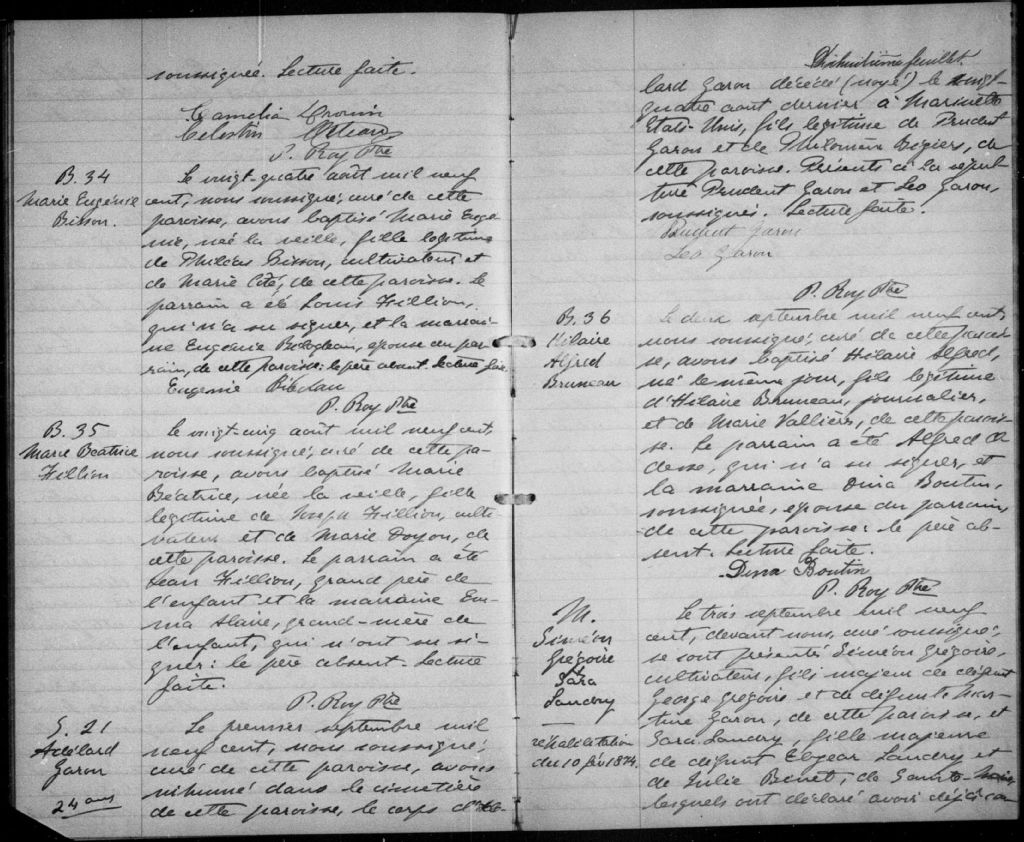 soussignée. Lecture faite.
Camelia Drouin
Celestin
P. Roy Ptre
B. 34
Marie Eugénie
Bisson.
Le vingt-quatre août mil neuf
cent, nous soussigné, curé de cette
paroisse, avons baptisé Marie Euge-
nie, née la veille, fille legitime
de Philéas Bisson, cultivateur et
de Marie Cité, de cette paroisse. Le
parrain a été Louis Fillion,
qui n'a su signer, et la marrai-
ne Eugénie, epouse du par-
rain, de cette paroisse: le père absent. Lecture faite
Eugenie
P. Roy Ptre
B. 35
Marie Beatrice
Fillion
Le vingt-cinq aout mil neuf cent,
nous soussigné, curé de cette pa-
roisse, avons baptisé Marie
Béatrice, née la veille, fille
legitime de Joseph Fillion, culti-
vateur et de Marie Doyon, de
cette paroisse. Le parrain a été
Jean Fillion, grand père de
l'enfant et la marraine Em-
ma Alaire, grand-mère de
l'enfant, qui n'ont su si-
gner: le père absent. Lecture
faite.
P. Roy Ptre
S. 21
Adélard
Garon
24 ans
Le premier septembre mil
neuf cent, nous soussigné,
curé de cette paroisse, avons
inhumé dans le cimetière
de cette paroisse, le corps d'Adé-
Dixhuitième feuillet.
lard Garon décédé (noyé) le vingt-
quatre aout dernier à Marinette
Etats-Unis, fils legitime de Prudent
Garon et de Philomène, de
cette paroisse. Présents à la sépul-
ture Prudent Garon et Leo Garon,
soussignés. Lecture faite.
Prudent Garon
Leo Garon
P. Roy Ptre
B. 36
Hilaire
Alfred
Bruneau
Le deux septembre mil neuf cent,
nous soussigné, curé de cette parois-
se, avons baptisé Hilaire Alfred,
né le même jour, fils legitime
d'Hilaire Bruneau, journalier,
et de Marie Vallières, de cette parois-
se. Le parrain a été Alfred
qui n'a su signer, et
la marraine Dina Boutin,
soussignée, epouse du parrain,
de cette paroisse: le père ab-
sent. Lecture faite.
Dina Boutin
P. Roy Ptre
M.
Siméon
Grégoire
&
Sara
Landry
réhabilitation
du 10 fév 1874.
Le trois septembre mil neuf
cent, devant nous, curé soussigné,
se sont présentés Siméon Grégoire,
cultivateur, fils majeur de défunt
George Gregoire et de défunte
Garon, de cette paroisse, et
Sara Landry, fille majeure
de défunt Elzear Landry et
de Julie, de Sainte-
lesquels ont déclaré avoir déjà con